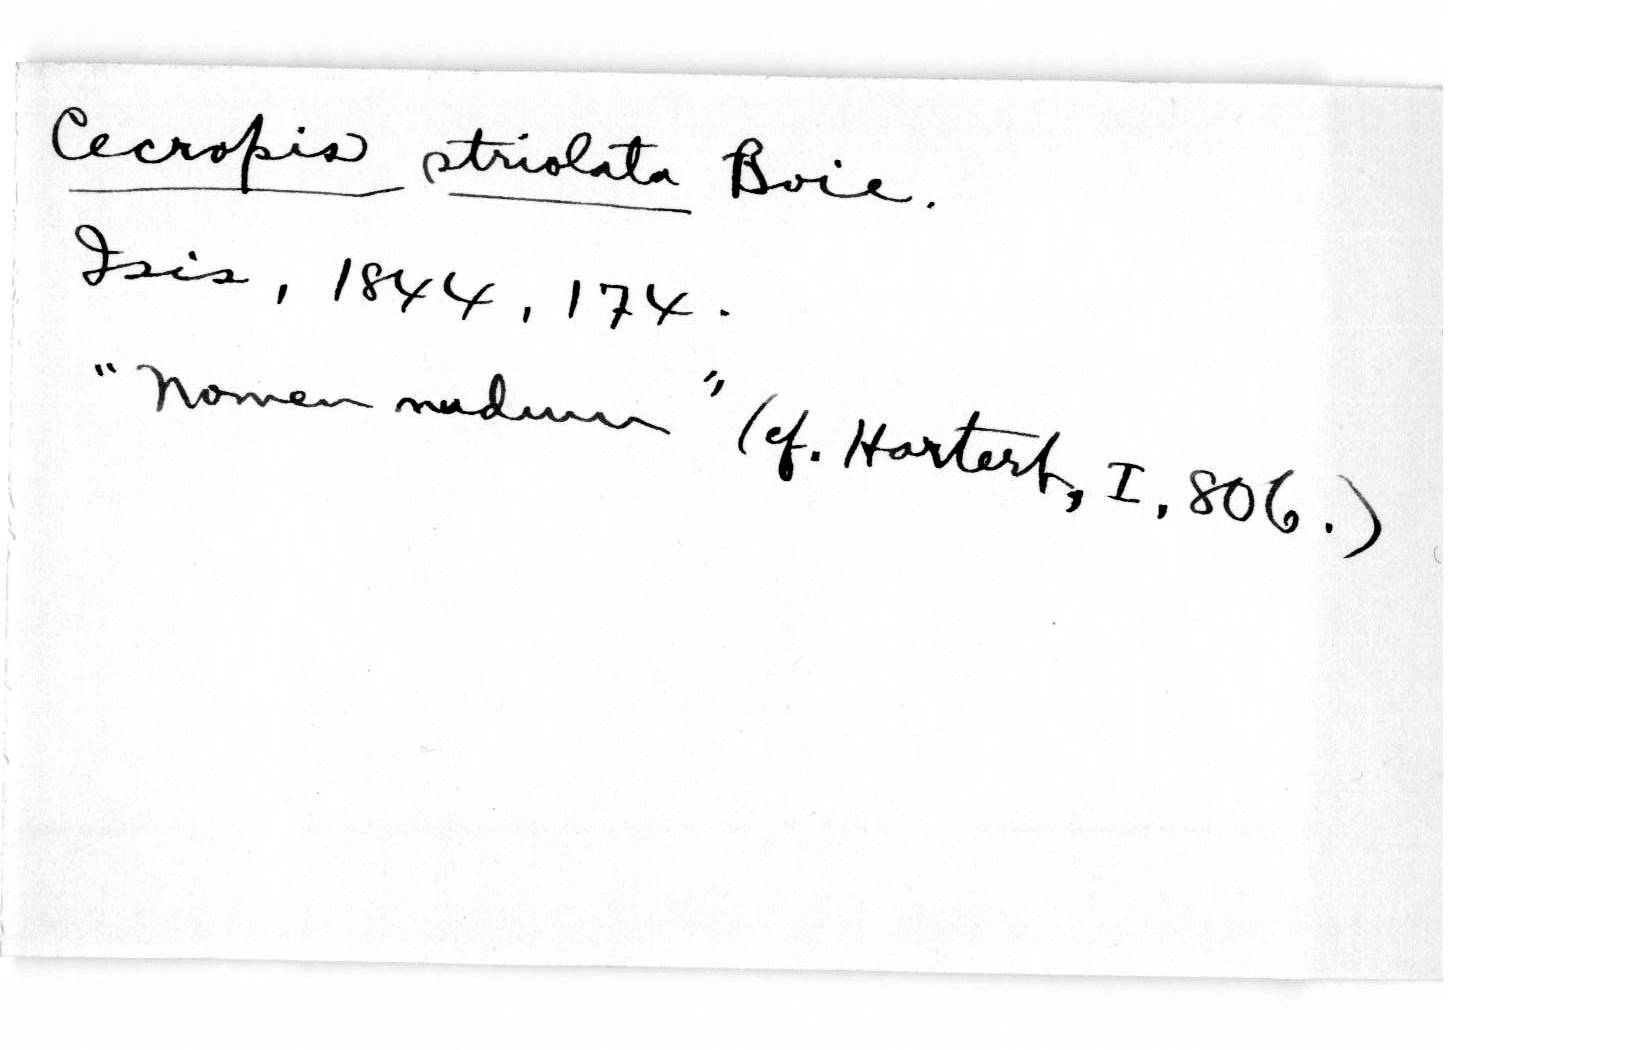 Cecropis striolata Boie.
Isis, 1844, 174.
"Nomen nudum" (cf. Hartert, I, 806.)